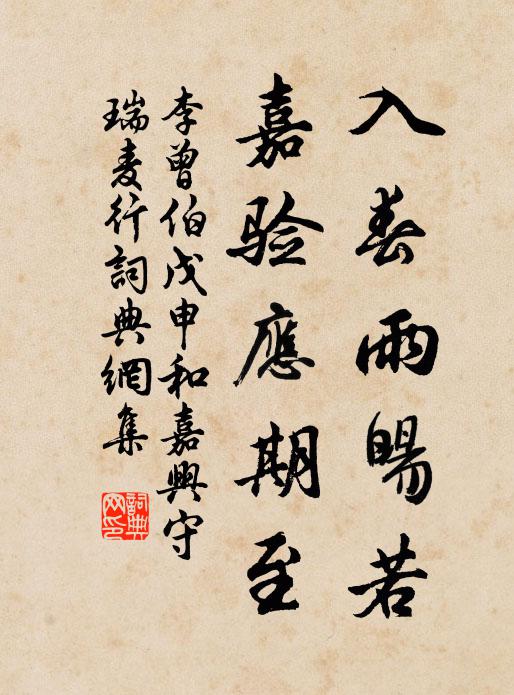 入春雨暘若
嘉验應期至
李曾伯戊申和嘉興守
瑞麦行詞典網集
詞典
网印